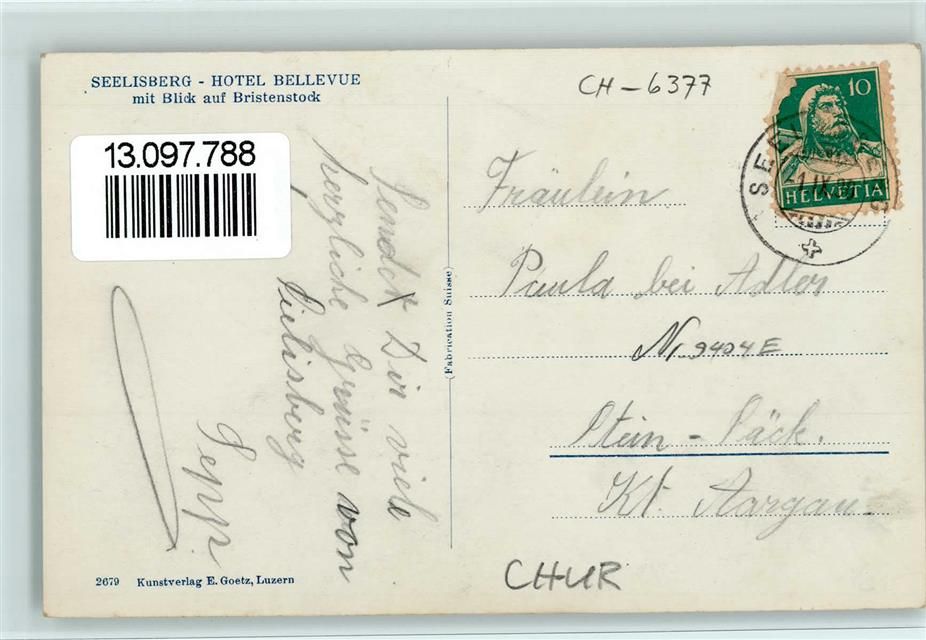 SEELISBERG - HOTEL BELLEVUE
mit Blick auf Bristenstock
13.097.788
CH-6377
10
HELVETIA
Sendet Dir viele
herzliche Grüsse von
Seelisberg
Sepp.
(Fabrication Suisse)
Fräulein
Paula bei Adler
Nr 9404E
Stein - Säck.
Kt. Aargau.
CHUR
2679 Kunstverlag E. Goetz, Luzern